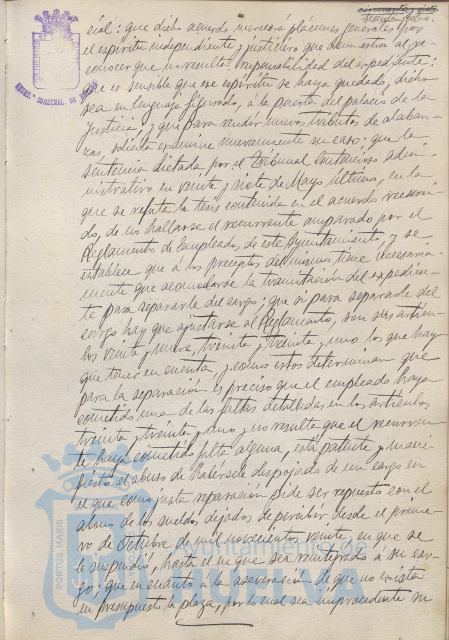 cial: que dicho acuerdo merecerá plácemes generales por
el espíritu independiente y justiciero que demuestra al re-
conocer que no resulta responsabilidad del expediente:
que es sensible que ese espíritu se haya quedado, dicho
sea en lenguaje figurado, a la puerta del palacio de la
justicia, y que para rendir nuevos tributos de alaban-
zas, solicita examine nuevamente su caso: que la
sentencia dictada por el Tribunal Contencioso admi-
nistrativo en veinte y siete de Mayo último, en la
que se refuta la tesis contenida en el acuerdo recurri-
do, de no hallarse el recurrente amparado por el
Reglamento de Empleados de este Ayuntamiento, y se
establece que a los preceptos del mismo tiene necesaria-
mente que acomodarse la tramitación del expedien-
te para separarle del cargo; que si para separarle del
cargo hay que ajustarse al Reglamento, son sus artícu-
los veinte y nueve, treinta y treinta y uno los que hay
que tener en cuenta, y como estos determinan que
para la separación es preciso que el empleado haya
cometido una de las faltas detalladas en los artículos
treinta y treinta y uno, y no resulta que el recurren-
te haya cometido falta alguna, está patente y mani-
fiesto el abuso de habérsele despojado de un cargo en
el que como justa reparación pide ser repuesto con el
abono de los sueldos dejados de percibir desde el prime-
ro de Octubre de mil novecientos veinte, en que se
le suspendió, hasta el en que sea reintegrado a su car-
go; que en cuanto a la aseveración de que no exista
en presupuesto la plaza, por lo cual sea improcedente su
AYUNT.º CONSTNAL. DE
PORTUS MARIS
Ayuntamiento de
HUELVA